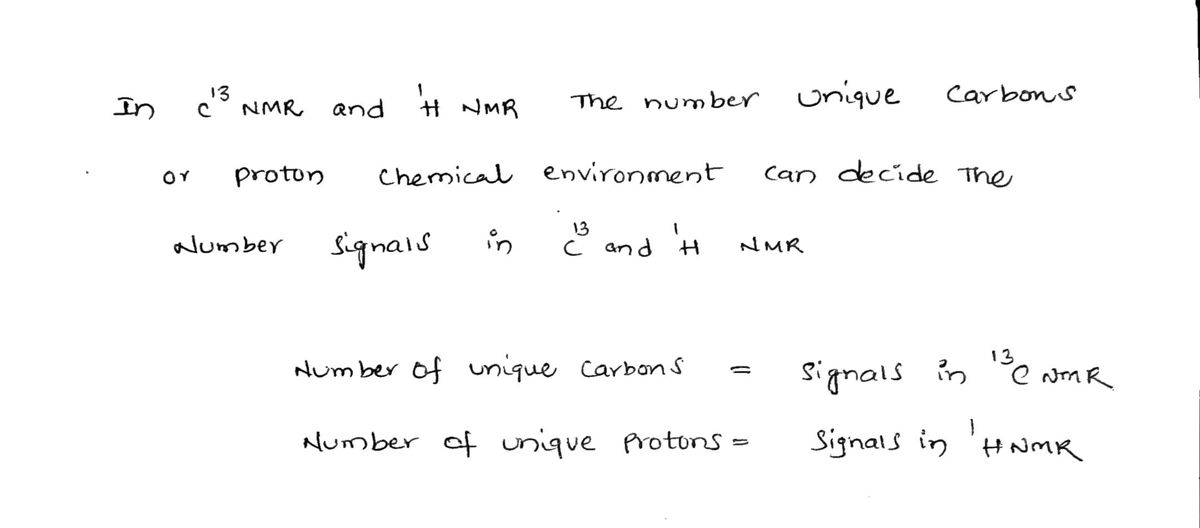 In C¹³ NMR and ¹H NMR The number unique carbons
or proton chemical environment can decide The
Number signals in C¹³ and ¹H NMR
Number of unique carbons = signals in ¹³C NMR
Number of unique protons = signals in ¹H NMR